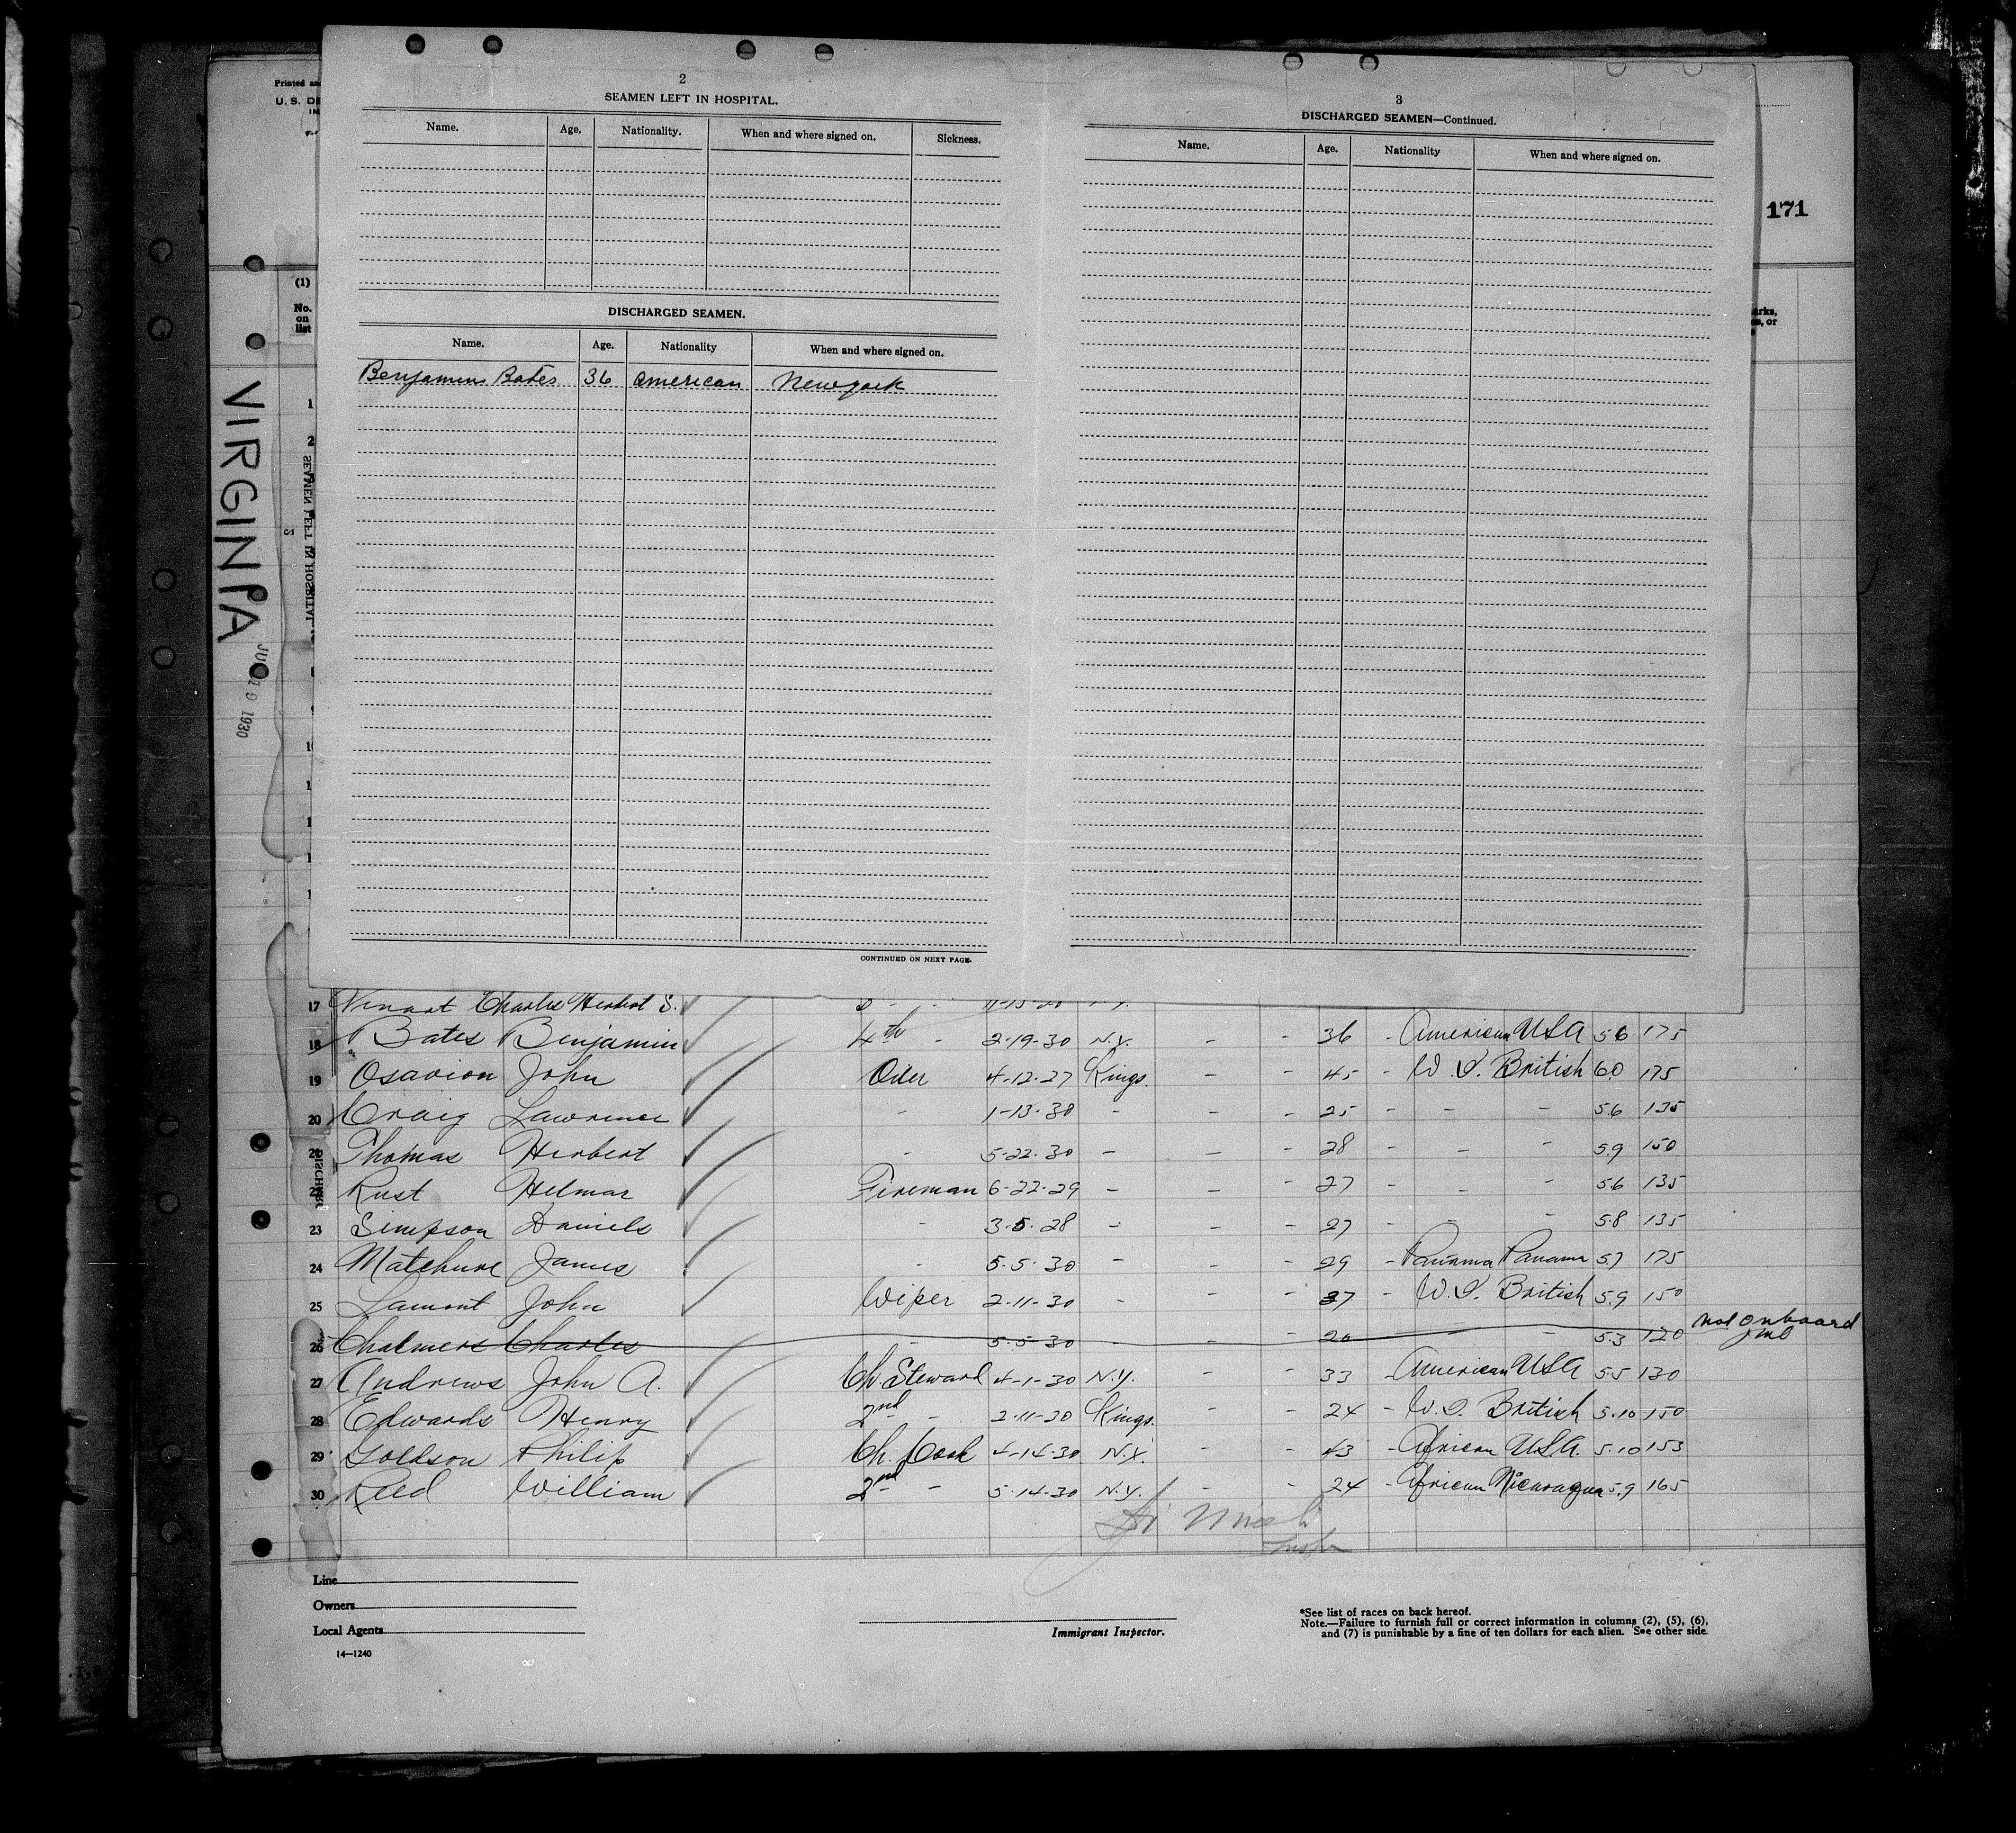 Printed an
U. S. DE
IN
171
2
SEAMEN LEFT IN HOSPITAL.
Name. Age. Nationality. When and where signed on. Sickness.
DISCHARGED SEAMEN.
Name. Age. Nationality When and where signed on.
Benjamin Bates 36 American New york
CONTINUED ON NEXT PAGE.
3
DISCHARGED SEAMEN—Continued.
Name. Age. Nationality When and where signed on.
(1)
No.
on
list
arks,
s, or
1
2
VIRGINIA
SEAMEN LEFT IN HOSPITAL
19 1930
17 Charles Herbert S.
18 Bates Benjamin 4th - 2-19-30 N.Y. - - 36 - American USA 5.6 175
19 John Oiler 4-12-27 Kings. - - 45 - W.I. British 6.0 175
20 Craig Lawrence - 1-13-30 - - - 25 - - - 5.6 135
21 Thomas Herbert - 5-22-30 - - - 28 - - - 5.9 150
22 Rust Helmar Fireman 6-22-29 - - - 27 - - - 5.6 135
23 Simpson Daniels - 3-5-28 - - - 27 - - - 5.8 135
24 James - 5-5-30 - - - 29 - Panama Panama 5.7 175
25 Lamont John Wiper 2-11-30 - - - 37 - W.I. British 5.9 150
26 Chalmers Charles - 5-5-30 - - - 20 - - - 5.3 120 not onboard
27 Andrews John A. Ch. Steward 4-1-30 N.Y. - - 33 - American USA 5.5 130
28 Edwards Henry 2nd - 2-11-30 Kings. - - 24 - W.I. British 5.10 150
29 Goldson Philip Ch. Cook 4-14-30 N.Y. - - 43 - African U.S.A. 5.10 153
30 Reed William 2nd - 5-14-30 N.Y. - - 24 - African Nicaragua 5.9 165
Line
Owners
Local Agents
14—1240
Immigrant Inspector.
*See list of races on back hereof.
Note.—Failure to furnish full or correct information in columns (2), (5), (6),
and (7) is punishable by a fine of ten dollars for each alien. See other side.